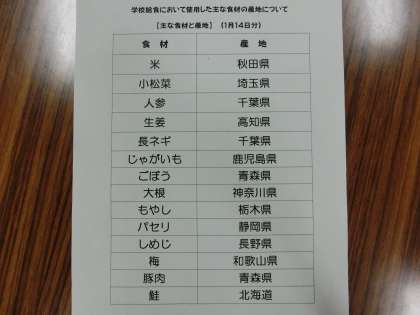 学校給食において使用した主な食材の産地について
【主な食材と産地】 (1月14日分)
食材 産地
米 秋田県
小松菜 埼玉県
人参 千葉県
生姜 高知県
長ネギ 千葉県
じゃがいも 鹿児島県
ごぼう 青森県
大根 神奈川県
もやし 栃木県
パセリ 静岡県
しめじ 長野県
梅 和歌山県
豚肉 青森県
鮭 北海道